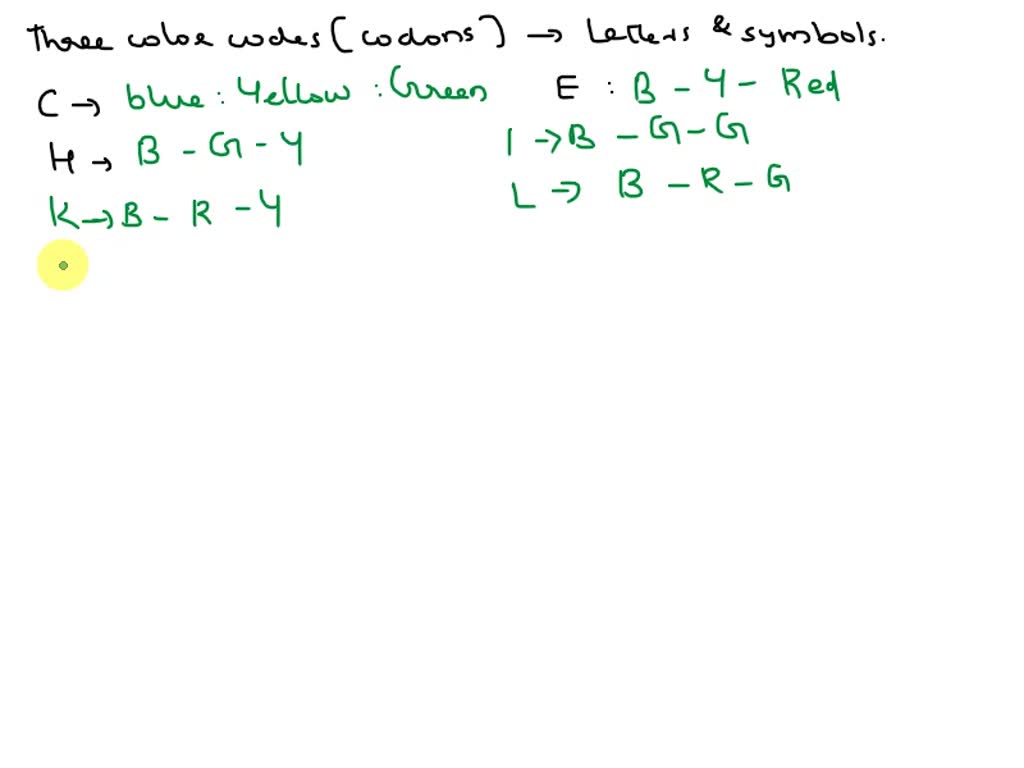 Three color codes (codons) → Letters & symbols.
C → blue : Yellow : Green E : B - Y - Red
H → B - G - Y I → B - G - G
K → B - R - Y L → B - R - G